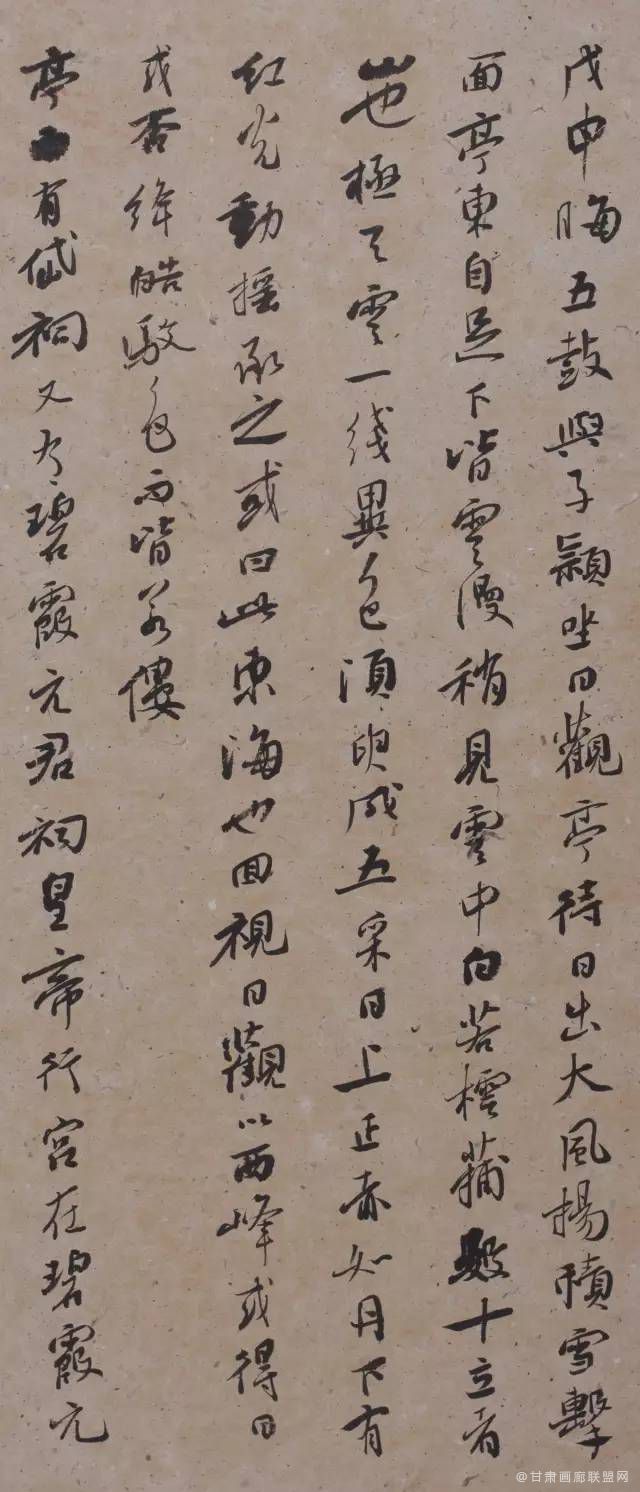 戊申晦五鼓與子穎坐日觀亭待日出大風揚積雪擊
面亭東自足下皆雲漫稍見雲中白若樗蒱數十立者
山也極天雲一綫異色須臾成五采日上正赤如丹下有
紅光動搖承之或曰此東海也回視日觀以西峰或得日
或否絳皓駁色而皆若僂
亭有岱祠又有碧霞元君祠皇帝行宮在碧霞元
@甘肃画廊联盟网